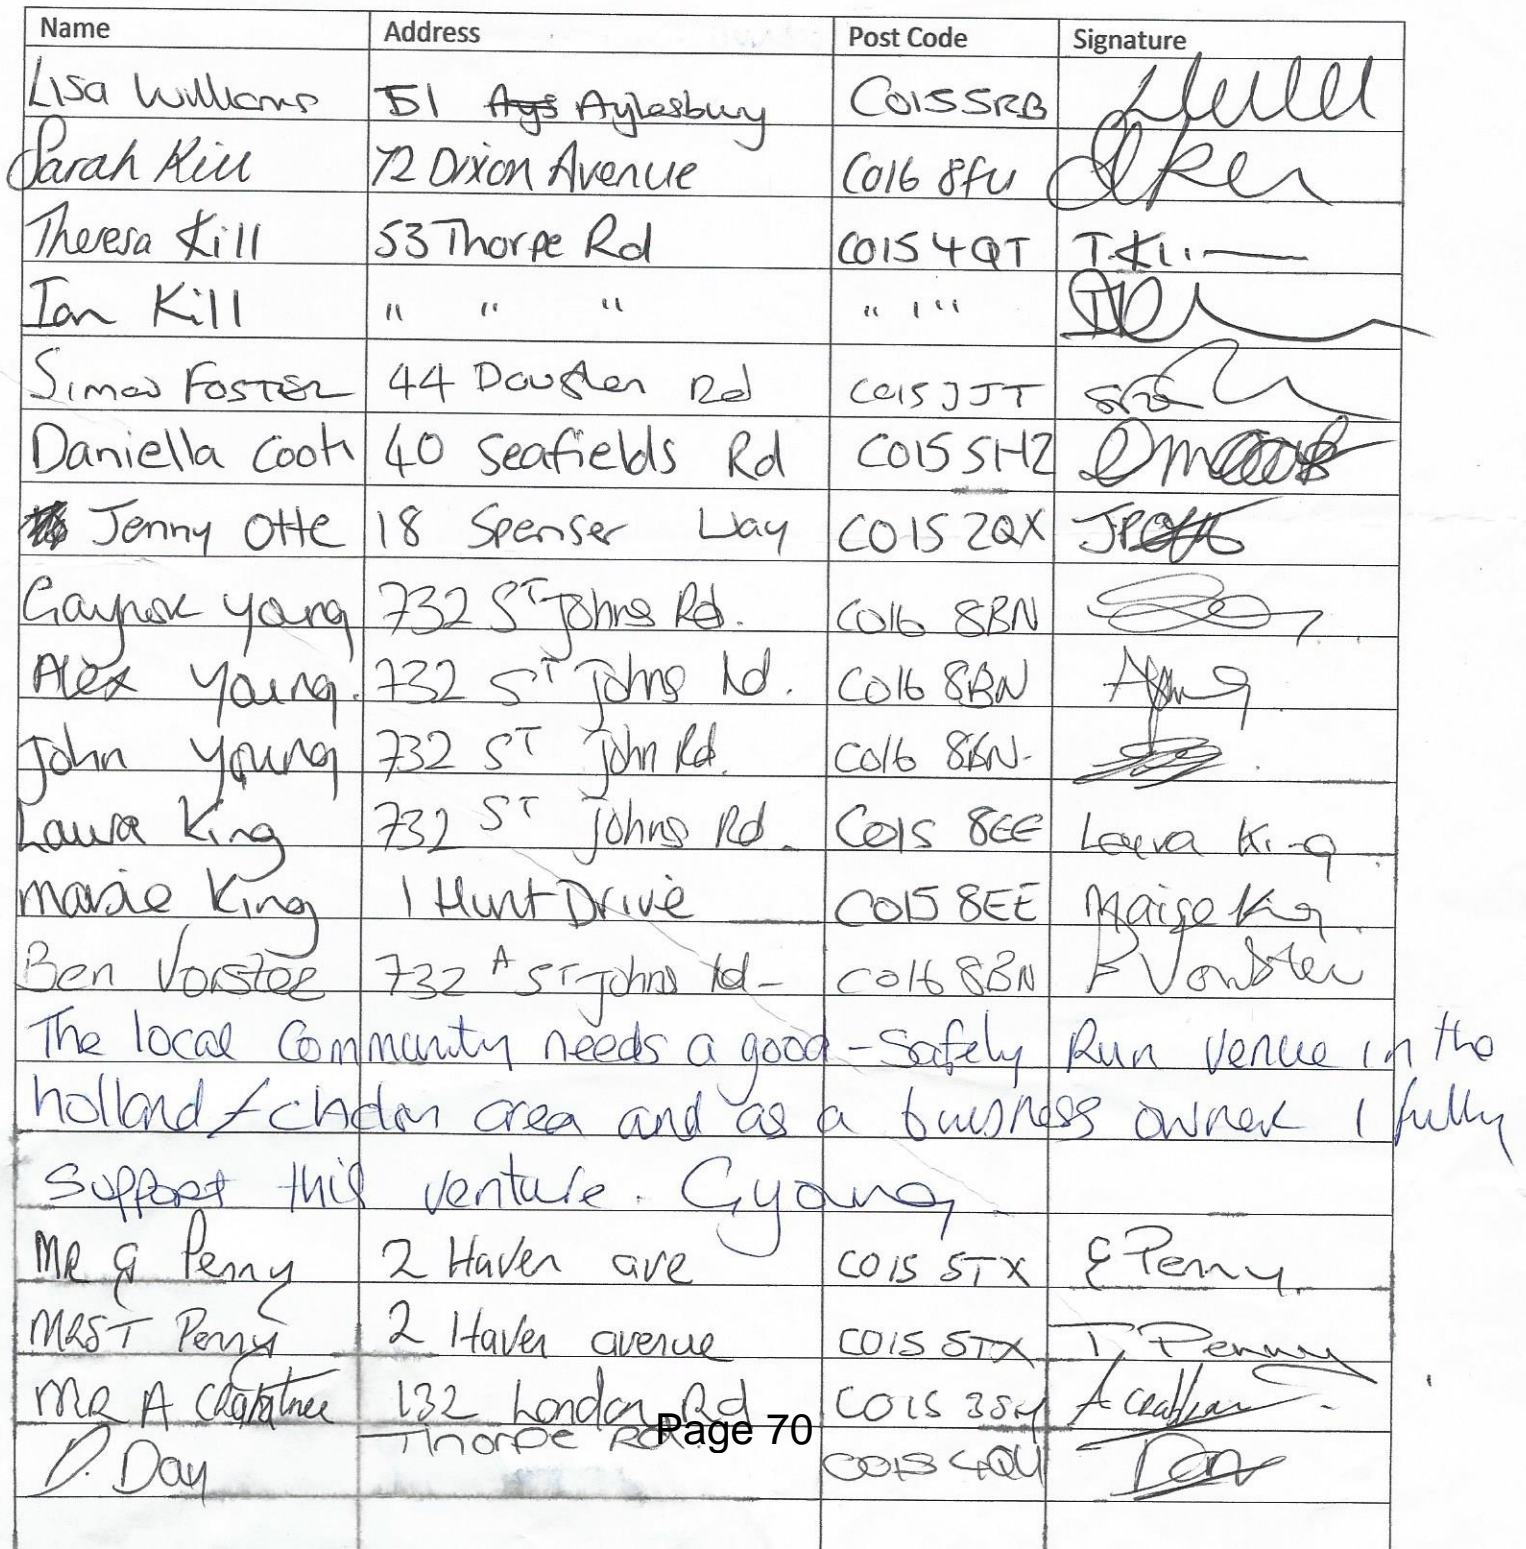 Name Address Post Code Signature
Lisa Williams 51 Ays Aylesbury CO15 5RB
Sarah Kill 72 Dixon Avenue CO16 8FU
Theresa Kill 53 Thorpe Rd CO15 4QT T. Kill
Ian Kill " " " " " "
Simon FOSTER 44 Rd CO15 3JT
Daniella Cook 40 Seafields Rd CO15 5HZ
Jenny Otte 18 Spenser Way CO15 2QX
Gaynor Young 732 ST Johns Rd. CO16 8BN
Alex Young. 732 ST Johns Rd. CO16 8BN AYoung
John Young 732 ST John Rd. CO16 8BN.
Laura King 732 ST Johns Rd. CO15 8EE Laura King
Marsie King 1 Hunt Drive CO15 8EE Maise King
Ben Vorster 732 A ST Johns Rd- CO16 8BN B Vorster
The local Community needs a good - safely Run venue in the
holland / clacton area and as a buisness owner I fully
support this venture. GYoung
MR G Penny 2 Haven ave CO15 5TX G Penny.
MRS T Penny 2 Haven avenue CO15 5TX T. Penny
MR A Crabtree 132 London Rd CO15 A Crabtree
Page 70
D. Day Thorpe Rd. CO15 4QU Day